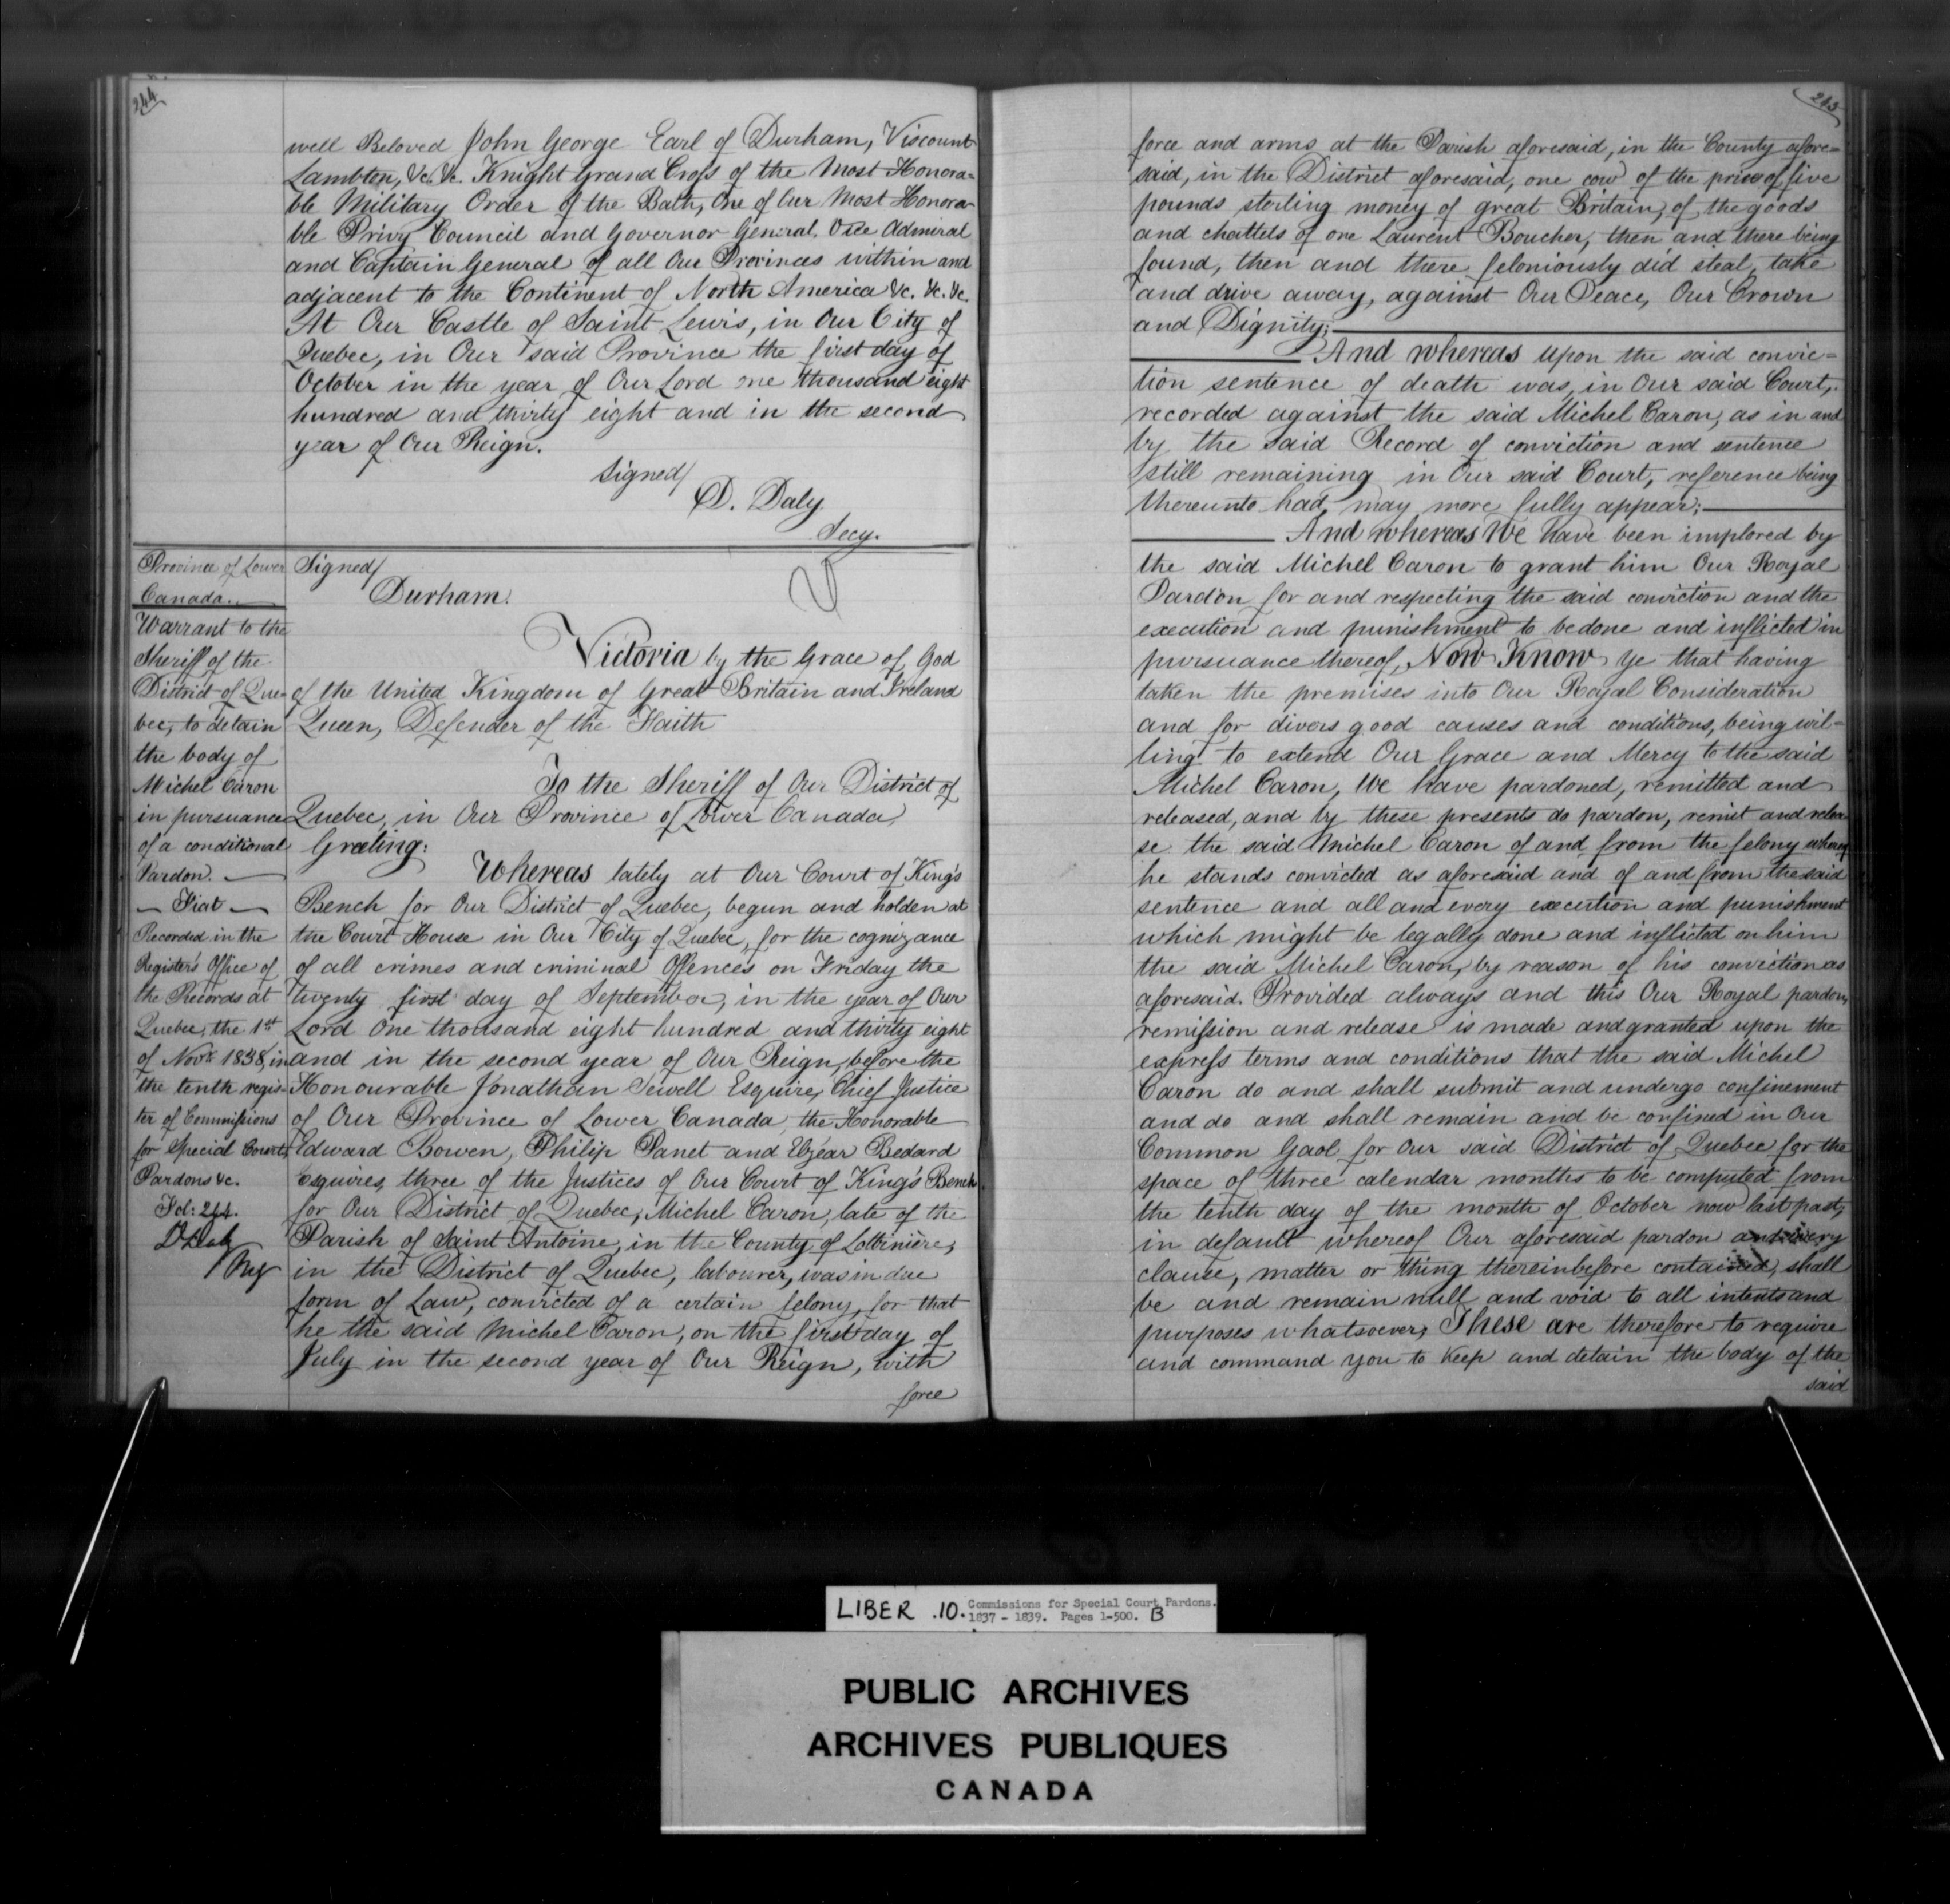 244
well Beloved John George Earl of Durham, Viscount
Lambton, &c. &c. Knight Grand Cross of the Most Honora=
ble Military Order of the Bath, One of Our Most Honora-
ble Privy Council and Governor General. Vice Admiral
and Captain General of all Our Provinces within and
adjacent to the Continent of North America &c. &c. &c.
At Our Castle of Saint Lewis, in Our City of
Quebec, in Our said Province the first day of
October in the year of Our Lord one thousand eight
hundred and thirty eight and in the second
year of Our Reign.
Signed/
D. Daly
Secy.
Province of Lower
Canada.
Warrant to the
Sheriff of the
District of Que-
bec, to detain
the body of
Michel Caron
in pursuance
of a conditional
Pardon.
Fiat
Recorded in the
Register's Office of
the Records at
Quebec, the 1st
of Novr. 1838, in
the tenth regis-
ter of Commissions
for Special Courts
Pardons &c.
Fol: 244.
D Daly
Reg
Signed/
Durham.
Victoria by the Grace of God
of the United Kingdom of Great Britain and Ireland
Queen, Defender of the Faith
To the Sheriff of Our District of
Quebec, in Our Province of Lower Canada,
Greeting:
Whereas lately at Our Court of King's
Bench for Our District of Quebec, begun and holden at
the Court House in Our City of Quebec, for the cognizance
of all crimes and criminal Offences on Friday the
twenty first day of September, in the year of Our
Lord One thousand eight hundred and thirty eight
and in the second year of Our Reign, before the
Honourable Jonathan Sewell Esquire, Chief Justice
of Our Province of Lower Canada, the Honorable
Edward Bowen, Philip Panet and Elzéar Bedard
Esquires, three of the Justices of Our Court of King's Bench
for Our District of Quebec, Michel Caron, late of the
Parish of Saint Antoine, in the County of Lotbinière,
in the District of Quebec, labourer, was in due
form of Law, convicted of a certain felony, for that
he the said Michel Caron, on the first day of
July in the second year of Our Reign, with
force
245
force and arms at the Parish aforesaid, in the County afore=
said, in the District aforesaid, one cow of the price of five
pounds sterling money of great Britain, of the goods
and chattels of one Laurent Boucher, then and there being
found, then and there feloniously did steal, take
and drive away, against Our Peace, Our Crown
and Dignity;
And whereas upon the said convic=
tion sentence of death was, in Our said Court,
recorded against the said Michel Caron, as in and
by the said Record of conviction and sentence
still remaining in Our said Court, reference being
thereunto had, may more fully appear;
And whereas We have been implored by
the said Michel Caron to grant him Our Royal
Pardon for and respecting the said conviction and the
execution and punishment to be done and inflicted in
pursuance thereof, Now Know ye that having
taken the premises into Our Royal Consideration
and for divers good causes and conditions, being wil=
ling to extend Our Grace and Mercy to the said
Michel Caron, We have pardoned, remitted and
released, and by these presents do pardon, remit and relea-
se the said Michel Caron of and from the felony whereof
he stands convicted as aforesaid and of and from the said
sentence and all and every execution and punishment
which might be legally done and inflicted on him
the said Michel Caron, by reason of his conviction as
aforesaid. Provided always and this Our Royal pardon,
remission and release is made and granted upon the
express terms and conditions that the said Michel
Caron do and shall submit and undergo confinement
and do and shall remain and be confined in Our
Common Gaol for Our said District of Quebec for the
space of three calendar months to be computed from
the tenth day of the month of October now last past,
in default whereof Our aforesaid pardon and every
clause, matter or thing thereinbefore contained, shall
be and remain null and void to all intents and
purposes whatsoever; These are therefore to require
and command you to keep and detain the body of the
said
LIBER .10. Commissions for Special Court Pardons.
1837 - 1839. Pages 1-500. B
PUBLIC ARCHIVES
ARCHIVES PUBLIQUES
CANADA